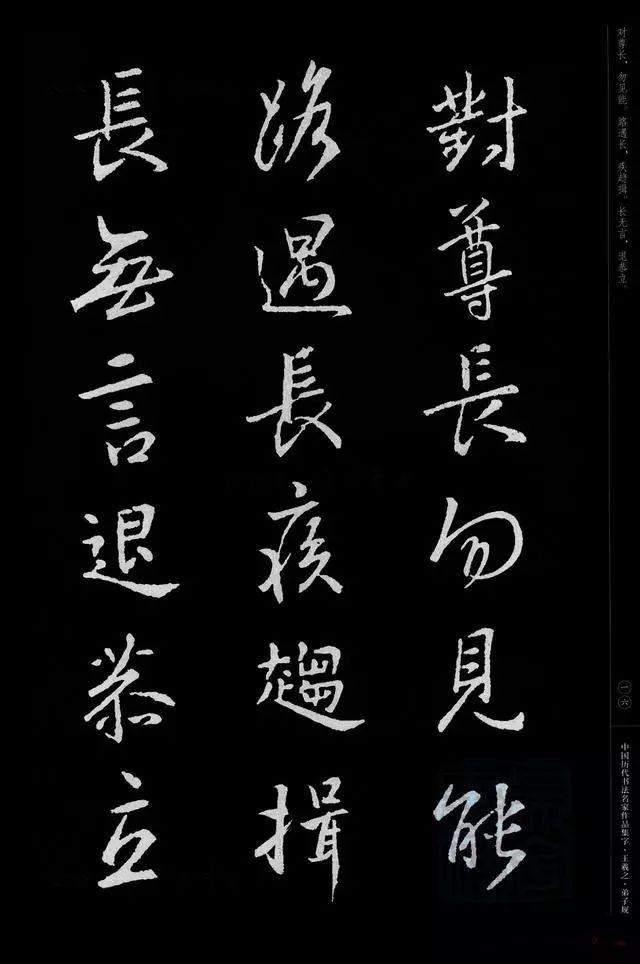 對尊長勿見能
路遇長疾趨揖
長無言退恭立
对尊长，勿见能。路遇长，疾趋揖。长无言，退恭立。
一六
中国历代书法名家作品集字·王羲之·弟子规